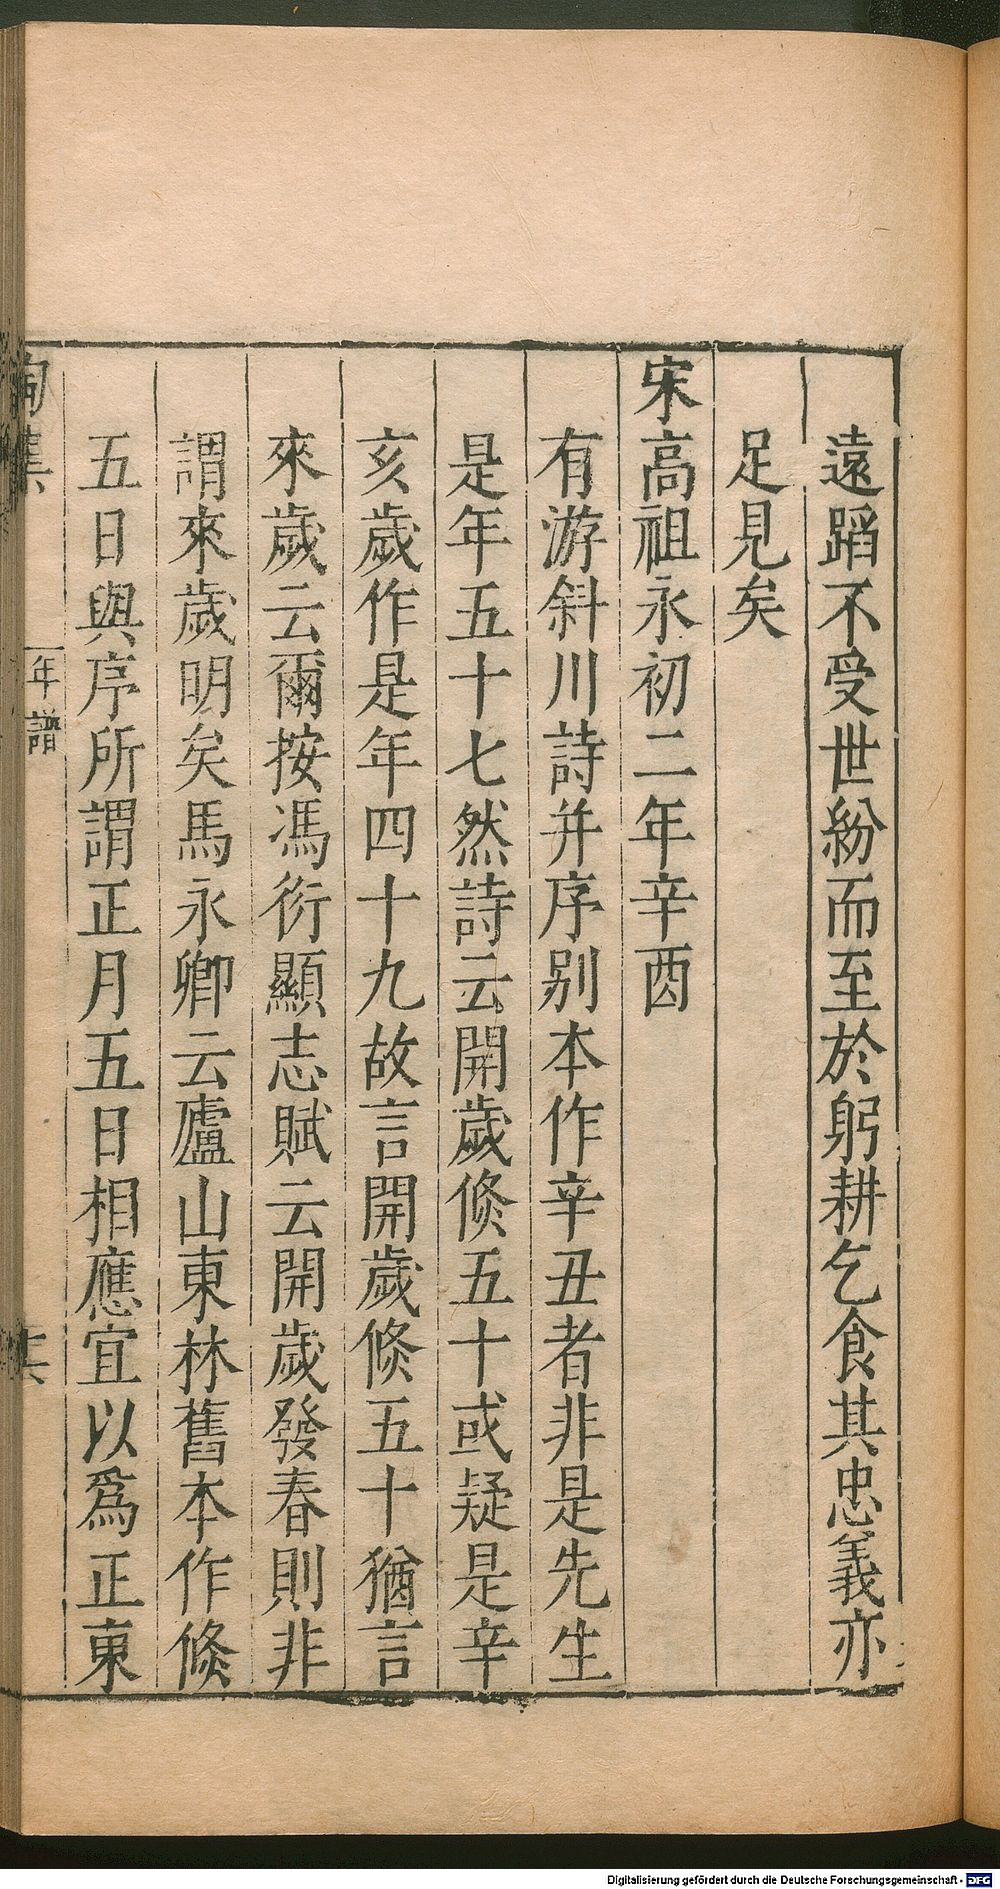 遠蹈不受世紛而至於躬耕乞食其忠義亦
足見矣
宋高祖永初二年辛酉
有游斜川詩并序别本作辛丑者非是先生
是年五十七然詩云開歲倐五十或疑是辛
亥歲作是年四十九故言開歲倐五十猶言
來歲云爾按馮衍顯志賦云開歲發春則非
謂來歲明矣馬永卿云廬山東林舊本作倐
五日與序所謂正月五日相應宜以爲正東
陶集
年譜
Digitalisierung gefördert durch die Deutsche Forschungsgemeinschaft - DFG